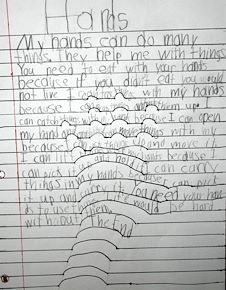 Hands
My hands can do many
things. They help me with things.
You need to eat with your hands
because if you didn't eat you would
not live I can with my hands
because I can them up I
can catch things with my hand because I can open
my hand and things with my
because I can and move it.
I can lift hands because I
can pick it up and hold it I can carry
things in my hands because I can pick
it up and carry it. You need your han
ds to use them. It would be hard
without. The End